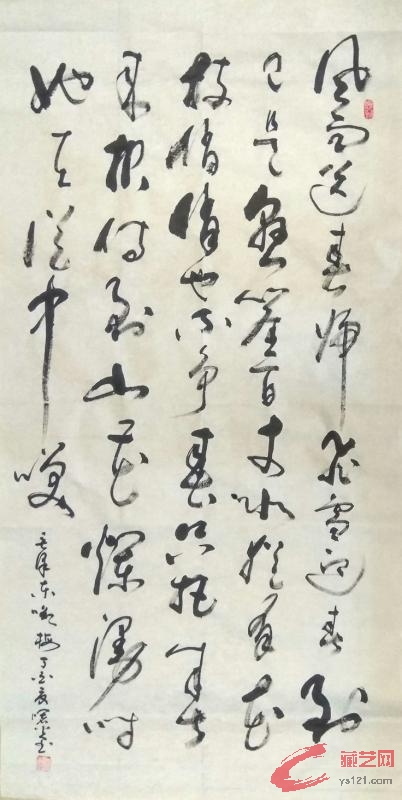 风雨送春归飞雪迎春到
已是悬崖百丈冰犹有花
枝俏俏也不争春只把春
来报待到山花烂漫时
她在丛中笑
毛泽东咏梅丁酉
藏艺网
ys121.com